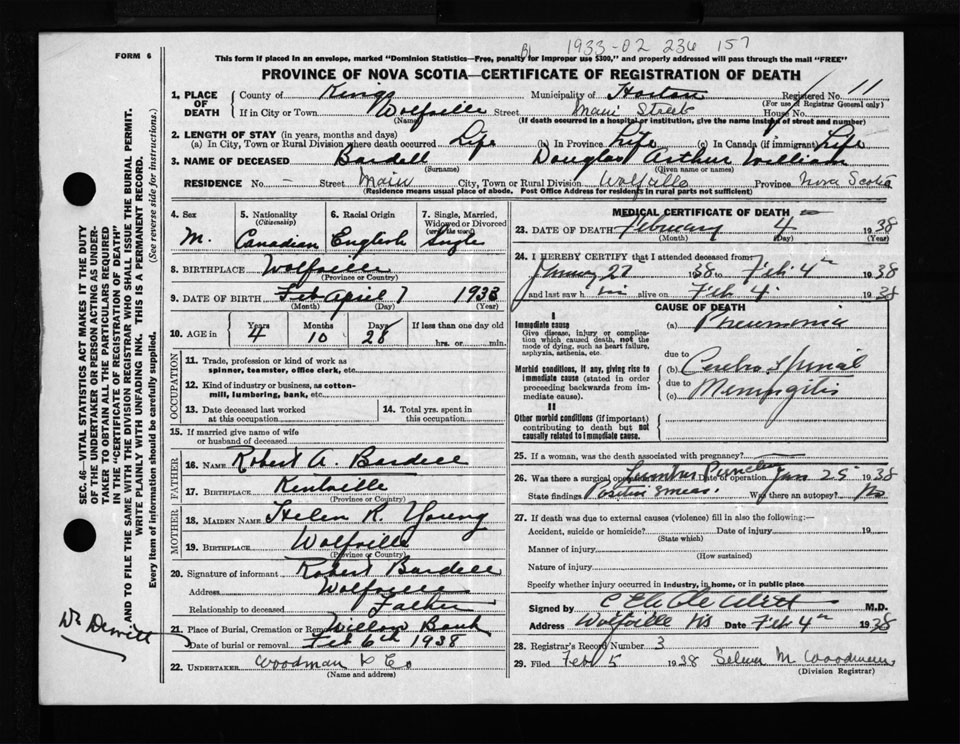 1933-02 236 157
FORM 6
This form if placed in an envelope, marked "Dominion Statistics—Free, penalty for improper use $300," and properly addressed will pass through the mail "FREE"
PROVINCE OF NOVA SCOTIA—CERTIFICATE OF REGISTRATION OF DEATH
SEC. 46—VITAL STATISTICS ACT MAKES IT THE DUTY
OF THE UNDERTAKER OR PERSON ACTING AS UNDER-
TAKER TO OBTAIN ALL THE PARTICULARS REQUIRED
IN THE "CERTIFICATE OF REGISTRATION OF DEATH"
AND TO FILE THE SAME WITH THE DIVISION REGISTRAR WHO SHALL ISSUE THE BURIAL PERMIT.
WRITE PLAINLY WITH UNFADING INK. THIS IS A PERMANENT RECORD.
Every item of information should be carefully supplied. (See reverse side for instructions.)
1. PLACE OF DEATH County of Kings Municipality of Horton Registered No. 11
(For use of Registrar General only)
If in City or Town Wolfville Street Main Street House No.
(Name) (If death occurred in a hospital or institution, give the name instead of street and number)
2. LENGTH OF STAY (in years, months and days)
(a) In City, Town or Rural Division where death occurred Life (b) In Province Life (c) In Canada (if immigrant) Life
3. NAME OF DECEASED Bardell Douglas Arthur William
(Surname) (Given name or names)
RESIDENCE No. — Street Main City, Town or Rural Division Wolfville Province Nova Scotia
(Residence means usual place of abode. Post Office Address for residents in rural parts not sufficient)
4. Sex M.
5. Nationality (Citizenship) Canadian
6. Racial Origin English
7. Single, Married, Widowed or Divorced (write the word) Single
8. BIRTHPLACE Wolfville
(Province or Country)
9. DATE OF BIRTH Feb April 7 1933
(Month) (Day) (Year)
10. AGE in Years 4 Months 10 Days 28 If less than one day old
hrs. or min.
OCCUPATION
11. Trade, profession or kind of work as spinner, teamster, office clerk, etc.
12. Kind of industry or business, as cotton-mill, lumbering, bank, etc.
13. Date deceased last worked at this occupation
14. Total yrs. spent in this occupation
15. If married give name of wife or husband of deceased
FATHER
16. NAME Robert A. Bardell
17. BIRTHPLACE Kentville
(Province or Country)
MOTHER
18. MAIDEN NAME Helen R. Young
19. BIRTHPLACE Wolfville
(Province or Country)
20. Signature of informant Robert Bardell
Address Wolfville
Relationship to deceased Father
21. Place of Burial, Cremation or Removal Willow Bank
Date of burial or removal Feb 6th 1938
22. UNDERTAKER Woodman & Co
(Name and address)
Dr Dewitt
MEDICAL CERTIFICATE OF DEATH
23. DATE OF DEATH February 4 1938
(Month) (Day) (Year)
24. I HEREBY CERTIFY that I attended deceased from
January 27 1938 to Feb 4th 1938
and last saw him alive on Feb 4 1938
CAUSE OF DEATH
I
Immediate cause
Give disease, injury or complication which caused death, not the mode of dying, such as heart failure, asphyxia, asthenia, etc.
(a) Pneumonia
due to
Morbid conditions, if any, giving rise to immediate cause (stated in order proceeding backwards from immediate cause).
(b) Cerebro Spinal
due to
(c) Meningitis
II
Other morbid conditions (if important) contributing to death but not causally related to immediate cause.
25. If a woman, was the death associated with pregnancy?
26. Was there a surgical operation? Lumbar Puncture Date of operation Jan 29 1938
State findings Positive smear. Was there an autopsy? No
27. If death was due to external causes (violence) fill in also the following:—
Accident, suicide or homicide? Date of injury 19
(State which)
Manner of injury
(How sustained)
Nature of injury
Specify whether injury occurred in industry, in home, or in public place
Signed by M.D.
Address Wolfville NS Date Feb 4th 1938
28. Registrar's Record Number 3
29. Filed Feb 5 1938 Selma M Woodman
(Division Registrar)